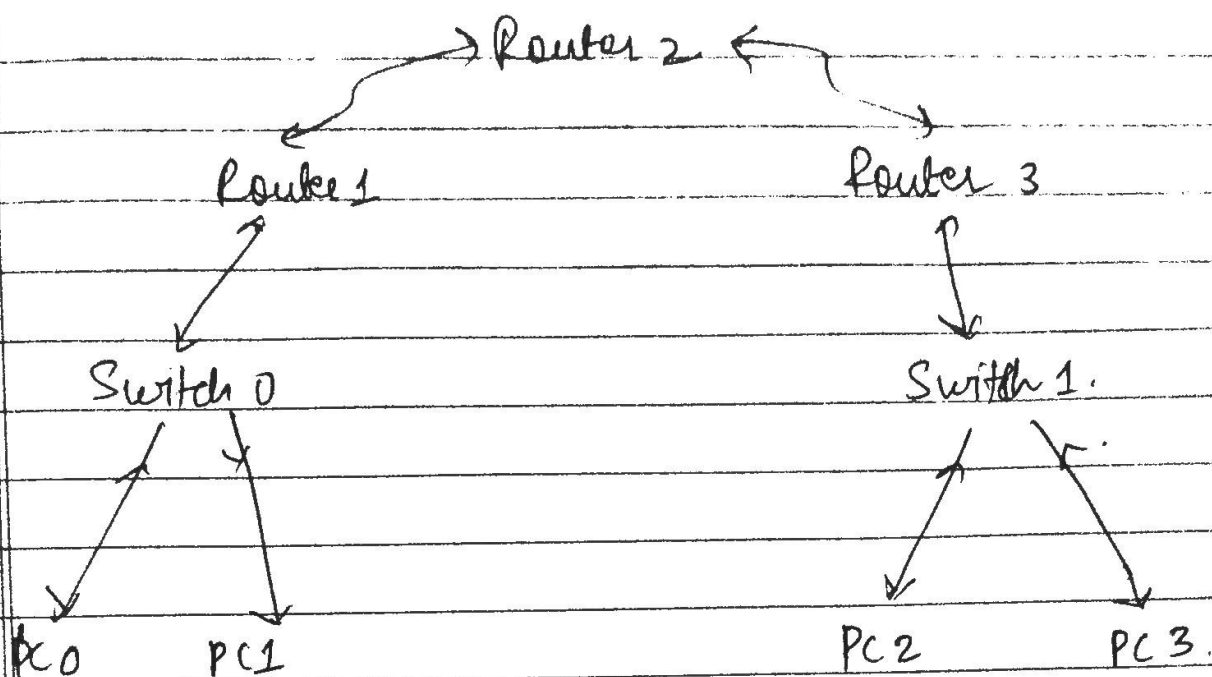 Router 2
Router 1 Router 3
Switch 0 Switch 1.
PC0 PC1 PC2 PC3.